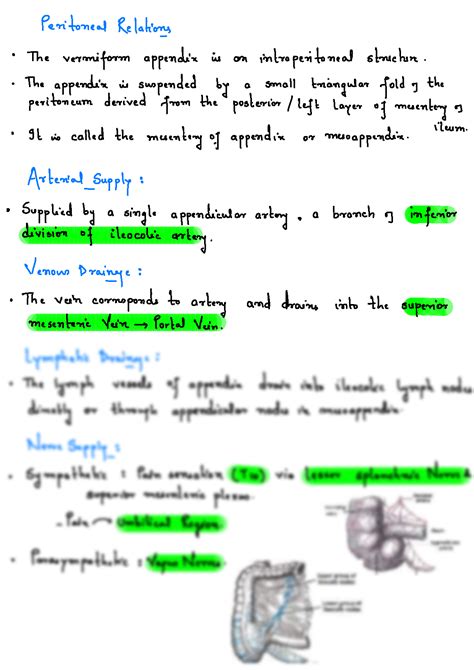 Peritoneal Relations
• The vermiform appendix is an intraperitoneal structure.
• The appendix is suspended by a small triangular fold of the
peritoneum derived from the posterior / left layer of mesentery of
ileum.
• It is called the mesentery of appendix or mesoappendix.
Arterial Supply :
• Supplied by a single appendicular artery, a branch of inferior
division of ileocolic artery.
Venous Drainage :
• The vein corresponds to artery and drains into the superior
mesenteric Vein → Portal Vein.
Lymphatic Drainage :
• The lymph vessels of appendix drain into ileocolic lymph nodes
directly or through appendicular nodes in mesoappendix.
Nerve Supply :
• Sympathetic : Pain sensation (T10) via lesser splanchnic Nerve &
superior mesenteric plexus.
- Pain → Umbilical Region.
• Parasympathetic : Vagus Nerve.